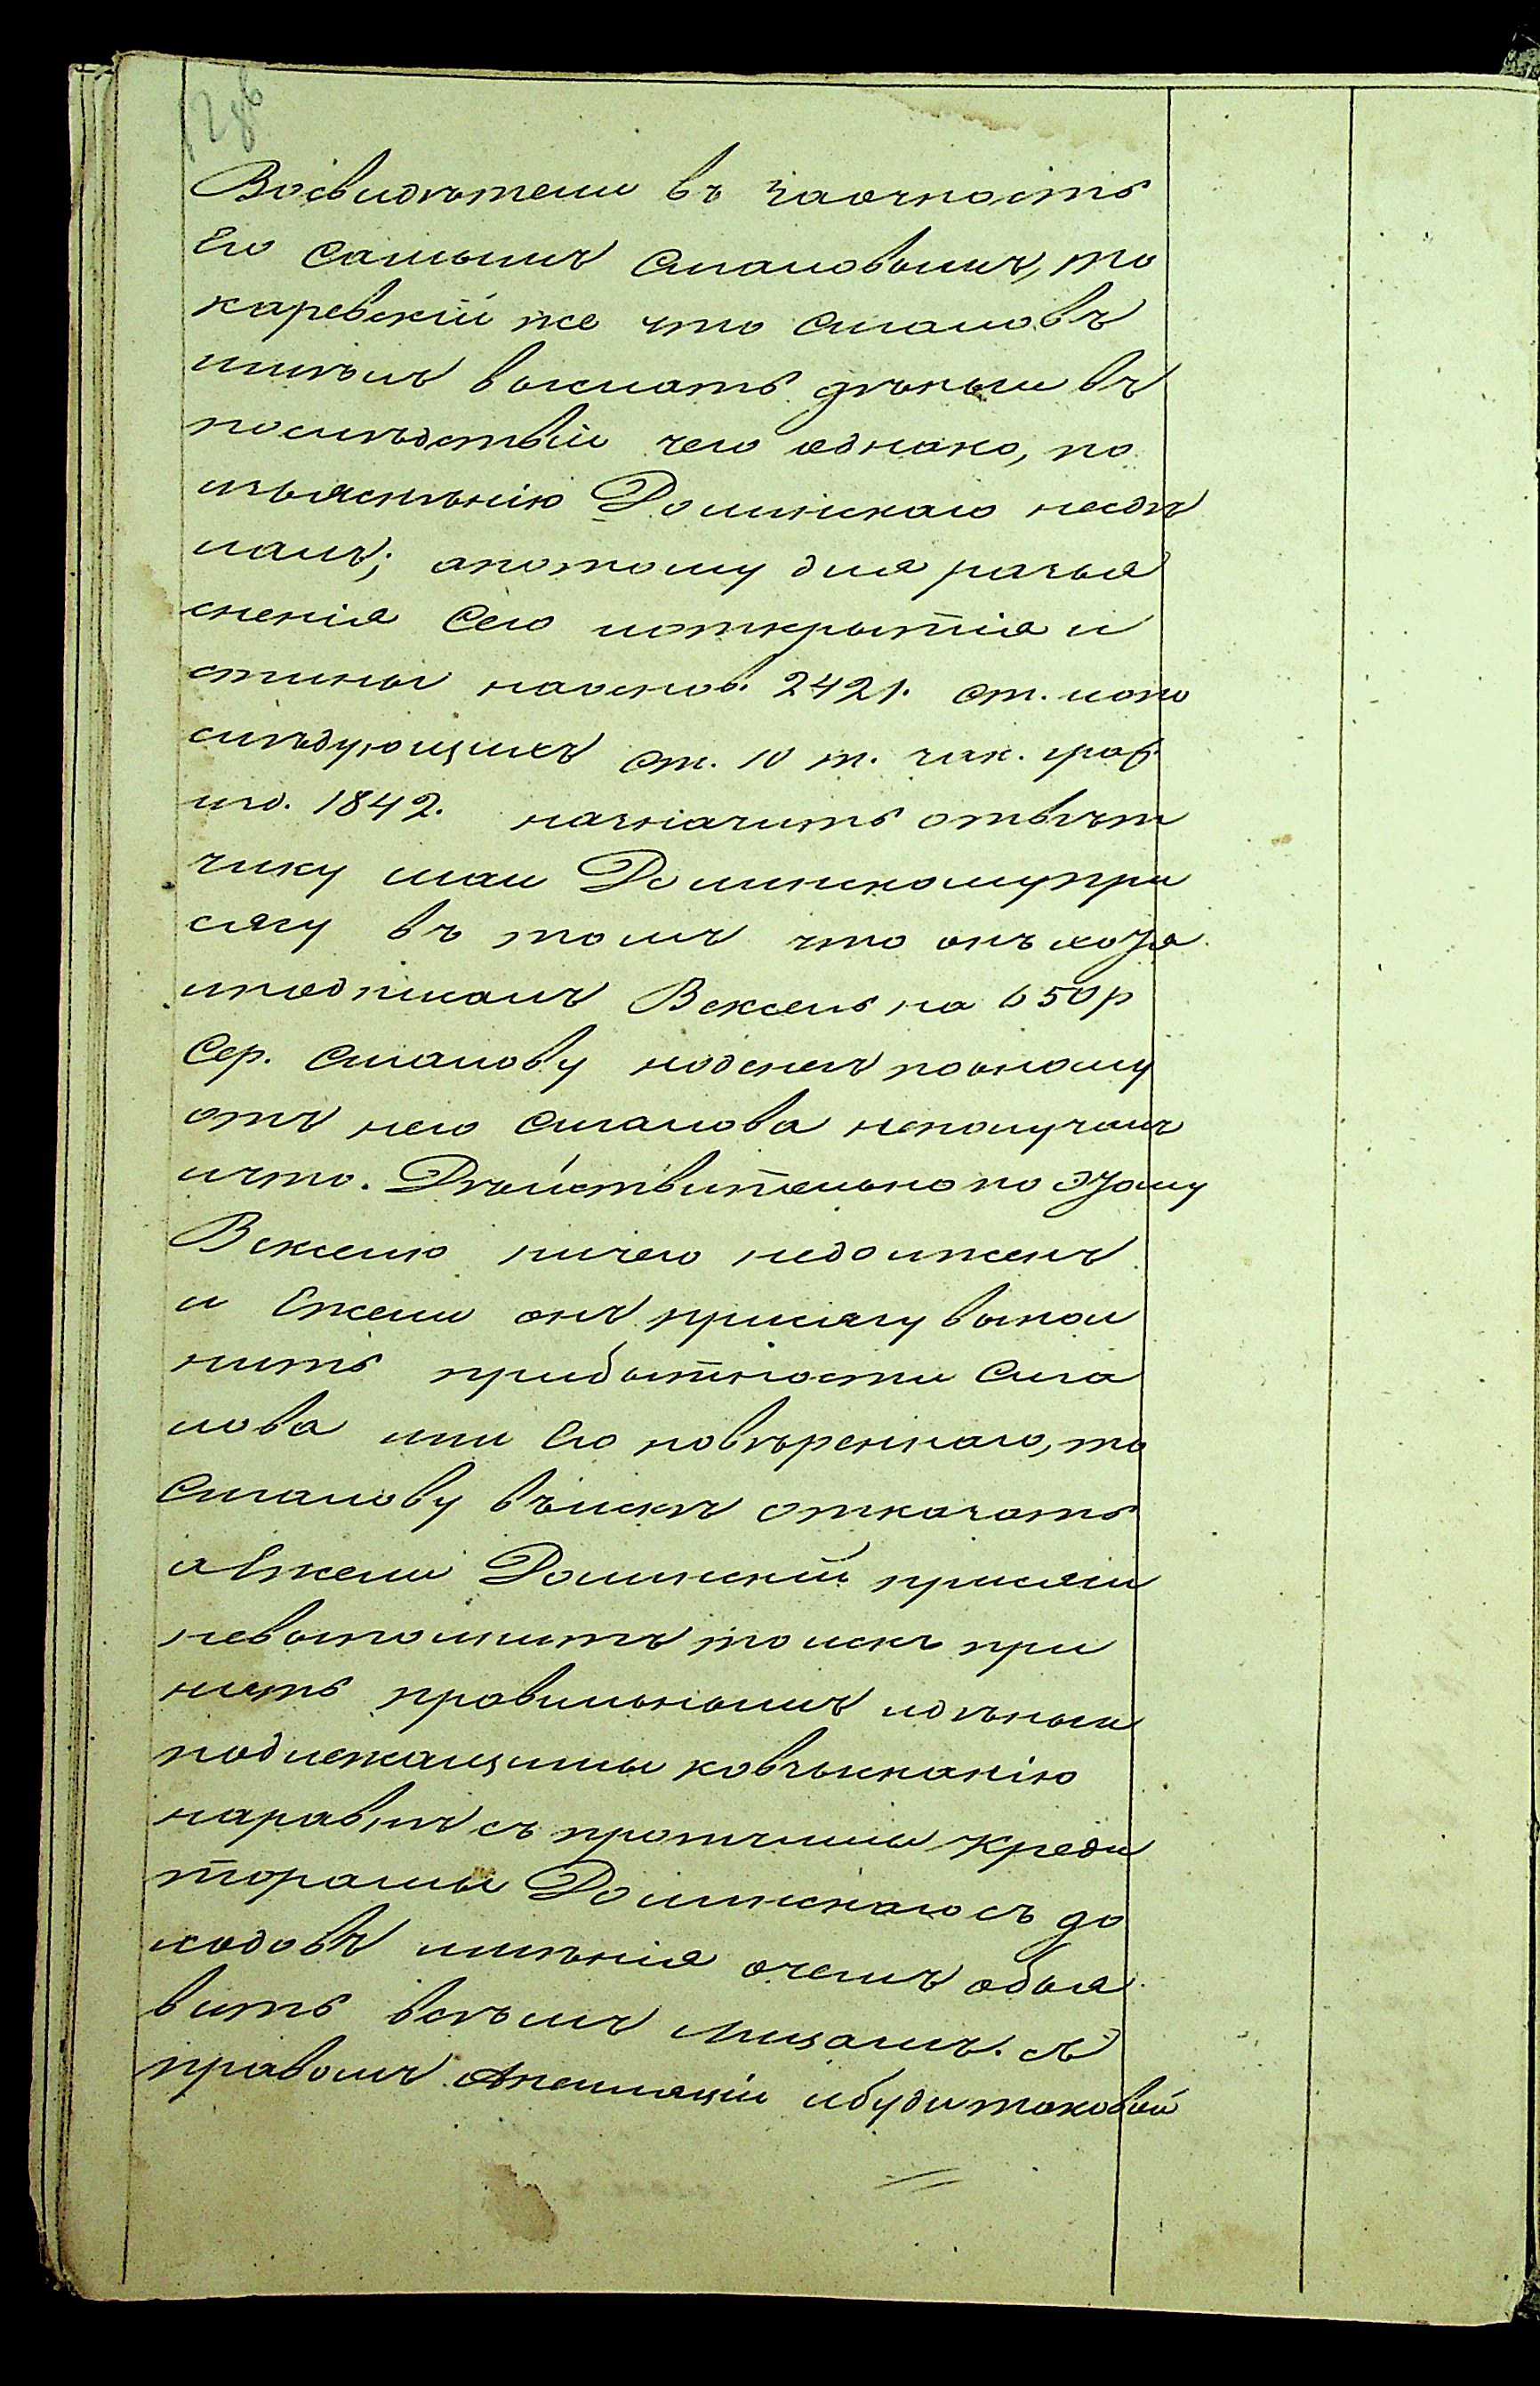 128б
Восвидѣтели въ заочность
Его самымъ Сталовымъ, то
каревскій же что Сталовъ
имѣлъ выслать деньги въ
послѣдствіи чего однако, по
изъясненію Долинскаго несдѣ
лалъ; апотому для разъя
сненія сего иоткрытія и
стины наоснов. 2421. ст. ипо
слѣдующихъ ст. 10 т. зак. граж.
изд. 1842. назначить отвѣт
чику Долинскому при
сягу въ томъ что онъ хотя
иподписалъ Вексель на 650 р
Сер. Сталову но денегъ поьному
отъ него Сталова неполучалъ
ичто. Дѣйствительно по этому
Векселю ничего недолженъ
и Ежели онъ присягу выпол
нитъ прибытности Ста
лова или Его повѣреннаго, то
Сталову въискѣ отказать
а Ежели Долинскій присяги
невыполнитъ то искъ при
нять правильнымъ иденьги
подлежащими ковзысканію
наравнѣ съ протчими креди
торами Долинскаго съ до
ходовъ имѣнія очемъ объя
вить всѣмъ лицамъ. съ
правомъ Апелляціи ибуди таковой